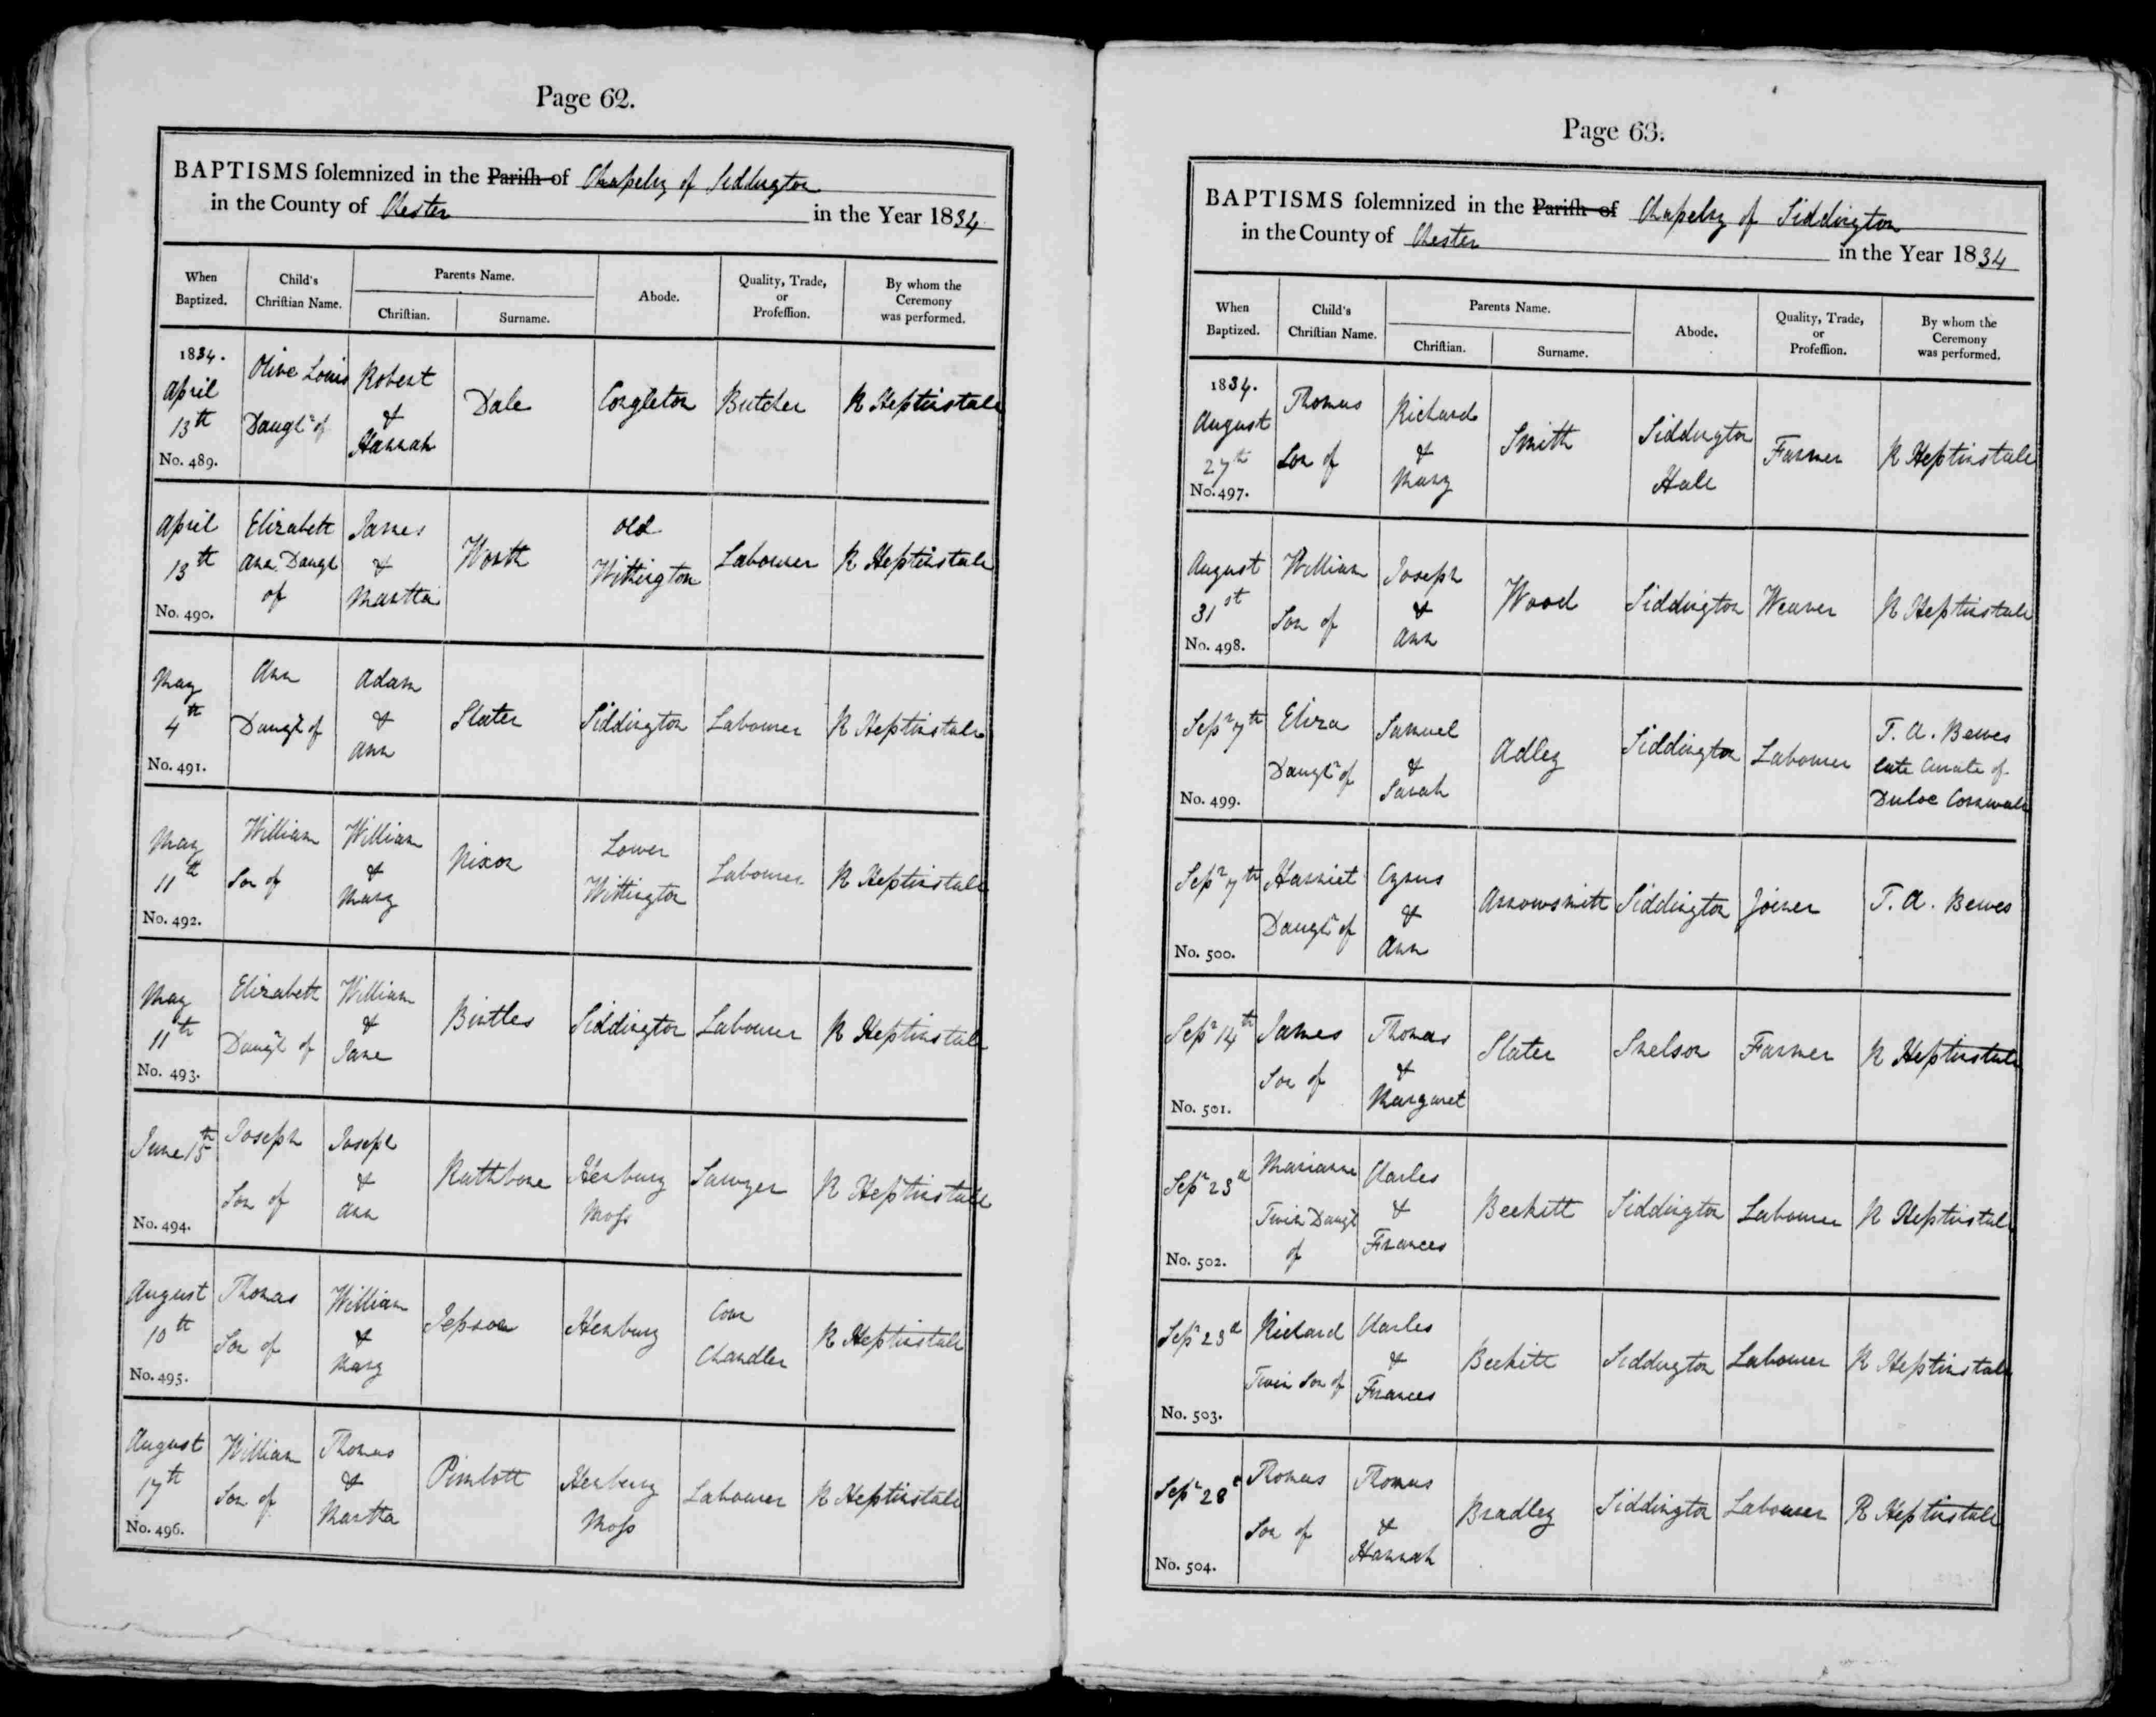 Page 62.
BAPTISMS solemnized in the Parish of Chapelry of Siddington
in the County of Chester in the Year 1834
When Baptized. Child's Christian Name. Parents Name. Christian. Surname. Abode. Quality, Trade, or Profession. By whom the Ceremony was performed.
1834.
April
13th
No. 489.
Olive Louis
Daugtr of
Robert
&
Hannah
Dale
Congleton
Butcher
R Heptinstall
April
13th
No. 490.
Elizabeth
Ann Daugt
of
James
&
Martha
Worth
Old
Withington
Labourer
R Heptinstall
May
4th
No. 491.
Ann
Daugt of
Adam
&
Ann
Slater
Siddington
Labourer
R Heptinstall
May
11th
No. 492.
William
Son of
William
&
Mary
Nixon
Lower
Withington
Labourer
R Heptinstall
May
11th
No. 493.
Elizabeth
Daugt of
William
&
Jane
Birtles
Siddington
Labourer
R Heptinstall
June 15th
No. 494.
Joseph
Son of
Joseph
&
Ann
Rathbone
Henbury
Moss
Sawyer
R Heptinstall
August
10th
No. 495.
Thomas
Son of
William
&
Mary
Jepson
Henbury
Corn
Chandler
R Heptinstall
August
17th
No. 496.
William
Son of
Thomas
&
Martha
Pimlott
Henbury
Moss
Labourer
R Heptinstall
Page 63.
BAPTISMS solemnized in the Parish of Chapelry of Siddington
in the County of Chester in the Year 1834
When Baptized. Child's Christian Name. Parents Name. Christian. Surname. Abode. Quality, Trade, or Profession. By whom the Ceremony was performed.
1834.
August
27th
No. 497.
Thomas
Son of
Richard
&
Mary
Smith
Siddington
Hall
Farmer
R Heptinstall
August
31st
No. 498.
William
Son of
Joseph
&
Ann
Wood
Siddington
Weaver
R Heptinstall
Sepr 7th
No. 499.
Eliza
Daugtr of
Samuel
&
Sarah
Adley
Siddington
Labourer
T. A. Bewes
late Curate of
Duloe Cornwall
Sepr 7th
No. 500.
Harriet
Daugtr of
Cyrus
&
Ann
Arrowsmith
Siddington
Joiner
T. A. Bewes
Sepr 14th
No. 501.
James
Son of
Thomas
&
Margaret
Slater
Snelson
Farmer
R Heptinstall
Sepr 23d
No. 502.
Marianne
Twin Daugt
of
Charles
&
Frances
Beckitt
Siddington
Labourer
R Heptinstall
Sepr 23d
No. 503.
Richard
Twin Son of
Charles
&
Frances
Beckitt
Siddington
Labourer
R Heptinstall
Sepr 28
No. 504.
Thomas
Son of
Thomas
&
Hannah
Bradley
Siddington
Labourer
R Heptinstall